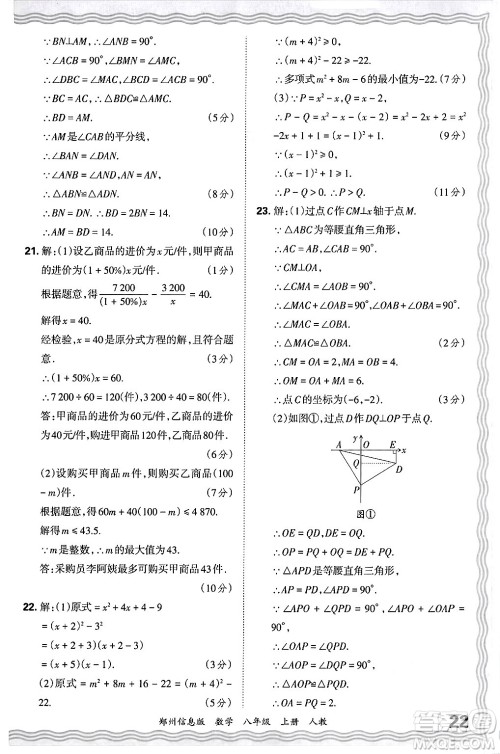 ∵BN⊥AM,∴∠ANB = 90°.
∵∠ACB = 90°,
∴∠CBD = ∠NAB = ∠CAM.
∵BC = AC,∴△BDC≌△AMC.
∴BD = AM. (5分)
∵AM是∠CAB的平分线,
∴∠BAN = ∠DAN.
∵∠ANB = ∠AND,AN = AN,
∴△ABN≌△ADN. (8分)
∴BN = DN. ∴BD = 2BN.
∴AM = BD = 14. (10分)
21. 解:(1)设乙商品的进价为x元/件,则甲商品
的进价为(1 + 50%)x元/件. (1分)
根据题意,得 7 200/(1 + 50%)x - 3 200/x = 40.
解得x = 40.
经检验,x = 40是原分式方程的解,且符合题
意. (3分)
∴(1 + 50%)x = 60.
∴7 200÷60 = 120,3 200÷40 = 80.
答:甲商品的进价为60元/件,乙商品的进价
为40元/件,购进甲商品120件,乙商品80件.
(6分)
(2)设购买甲商品m件,则购买乙商品(100
- m)件.
根据题意,得60m + 40(100 - m)≤4 870.
解得m≤43.5.
∵m是整数,∴m的最大值为43.
答:采购员李阿姨最多可购买甲商品43件.
(10分)
22. 解:(1)原式 = x² + 4x + 4 - 9
= (x + 2)² - 3²
= (x + 2 + 3)(x + 2 - 3)
= (x + 5)(x - 1). (3分)
(2)原式 = m² + 8m + 16 - 22 = (m + 4)² -
22. (5分)
∵(m + 4)²≥0,
∴(m + 4)² - 22≥-22.
∴多项式m² + 8m - 6的最小值为-22.(7分)
(3)∵P = x² - x,Q = x - 2,
∴P - Q = x² - x - (x - 2) = x² - 2x + 2 = x²
-2x + 1 + 1 = (x - 1)² + 1. (9分)
∵(x - 1)²≥0,
∴(x - 1)² + 1≥1.
∴P - Q>0. ∴P>Q. (11分)
23. 解:(1)过点C作CM⊥x轴于点M.
∵△ABC为等腰直角三角形,
∴AC = AB,∠CAB = 90°.
∵CM⊥OA,
∴∠CMA = ∠AOB = 90°.
∴∠MAC + ∠OAB = 90°,∠OAB + ∠OBA = 90°.
∴∠MAC = ∠OBA.
∴△MAC≌△OBA. (2分)
∴CM = OA = 2,MA = OB = 4.
∴OM = OA + MA = 6.
∴点C的坐标为(-6,-2). (3分)
(2)如图①,过点D作DQ⊥OP于点Q.
y
A O E x
Q D
P
图①
∴OE = QD,DE = OQ.
∴OP = PQ + OQ = PQ + DE.
∵△APD为等腰直角三角形,
∴AP = PD,∠APD = 90°.
∴∠APO + ∠QPD = 90°,∠APO + ∠OAP = 90°.
∴∠OAP = ∠QPD.
∴△AOP≌△PQD.
∴OA = PQ = 2.
郑州信息版 数学 八年级 上册 人教
22